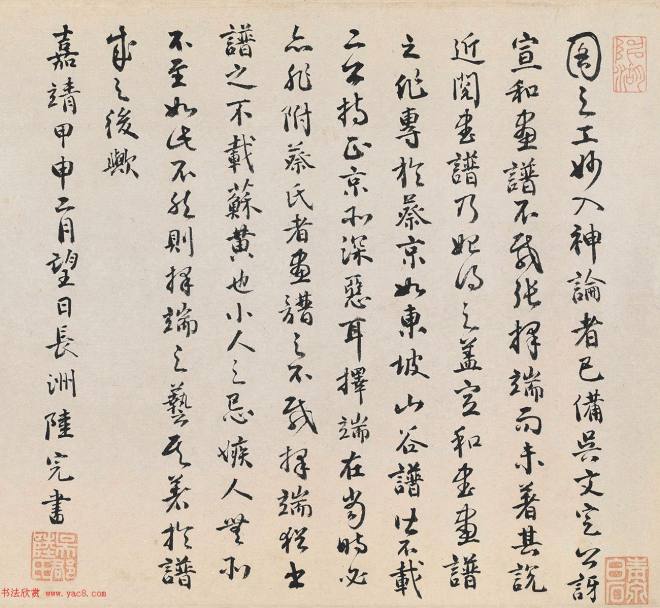 圖之工妙入神論者已備吳文定公訝
宣和畫譜不載張擇端而未著其說
近閱書譜乃始得之蓋宣和書畫譜
之作專於蔡京如東坡山谷譜皆不載
二公持正京所深惡耳擇端在當時必
亦非附蔡氏者畫譜之不載擇端猶書
譜之不載蘇黃也小人之忌嫉人無所
不至如此不然則擇端之藝其著於譜
成之後歟
嘉靖甲申二月望日長洲陸完書
书法欣赏 www.yac8.com